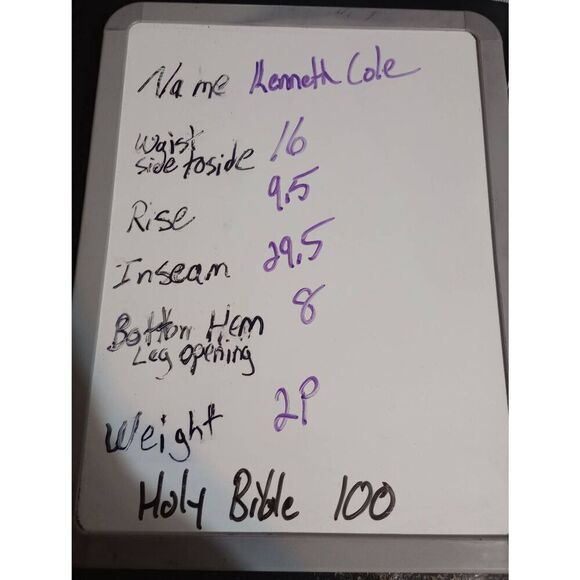 Name Kenneth Cole
Waist
side to side 16
Rise 9.5
Inseam 29.5
Bottom Hem 8
Leg opening
Weight 2P
Holy Bible 100